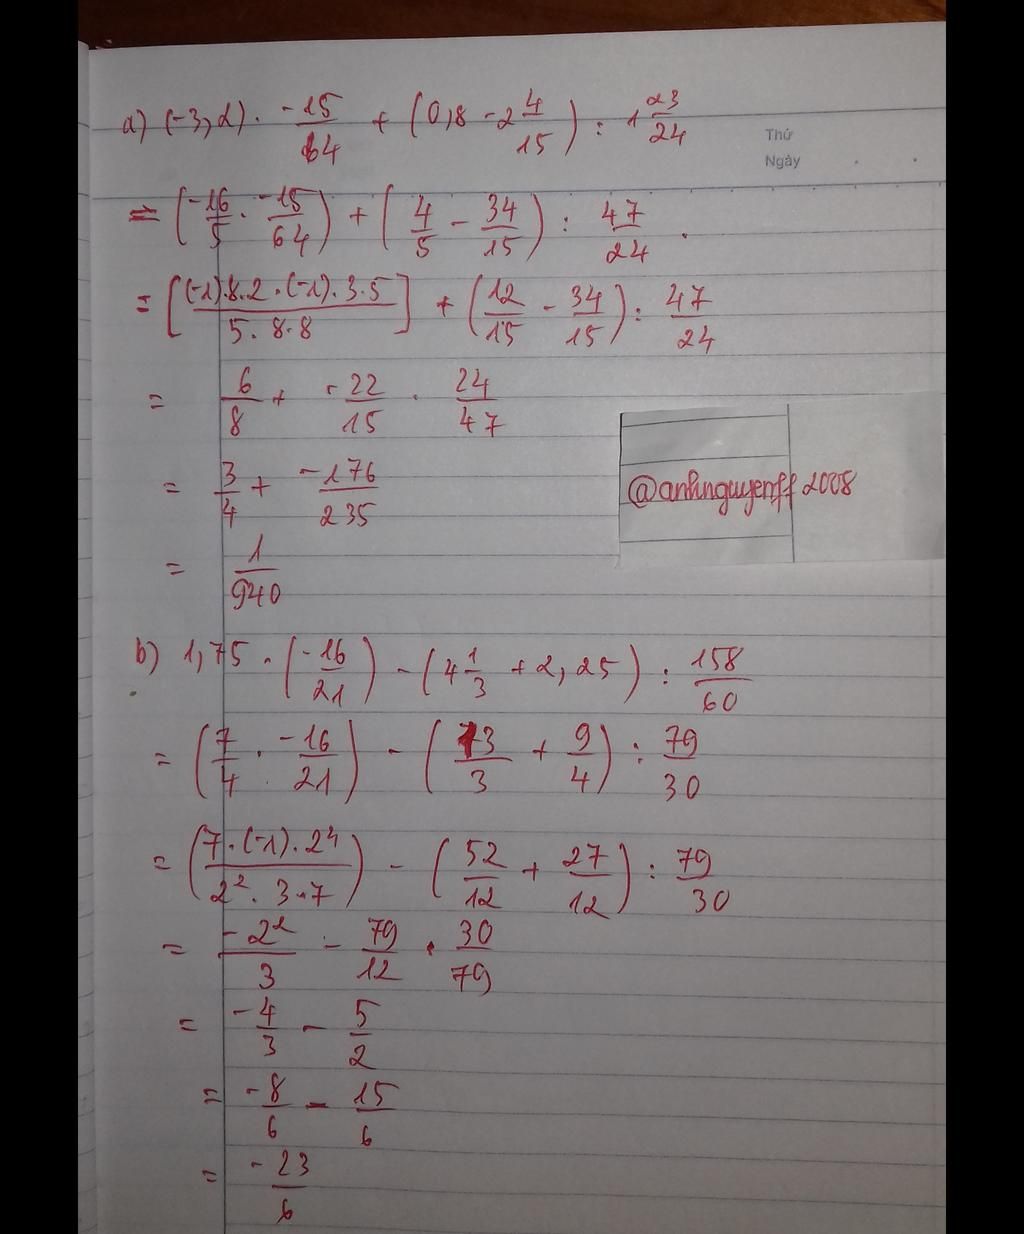 a) (-3,2) . -15/64 + (0,8 - 2 4/15) : 1 23/24
Thứ
Ngày
= (-16/5 . -15/64) + (4/5 - 34/15) : 47/24 .
= [(-1).8.2.(-1).3.5 / 5.8.8] + (12/15 - 34/15) : 47/24
= 6/8 + -22/15 . 24/47
= 3/4 + -176/235
@anhnguyenff2008
= 1/940
b) 1,75 . (-16/21) - (4 1/3 + 2,25) : 158/60
= (7/4 . -16/21) - (13/3 + 9/4) : 79/30
= (7.(-1).2⁴ / 2².3.7) - (52/12 + 27/12) : 79/30
= -2²/3 - 79/12 . 30/79
= -4/3 - 5/2
= -8/6 - 15/6
= -23/6